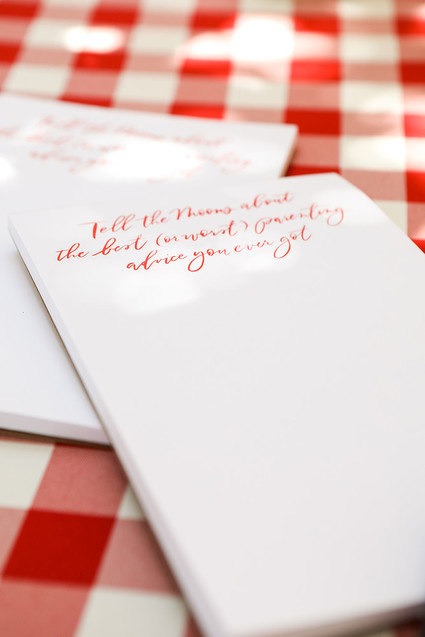 Tell the Moons about
the best (or worst) parenting
advice you ever got